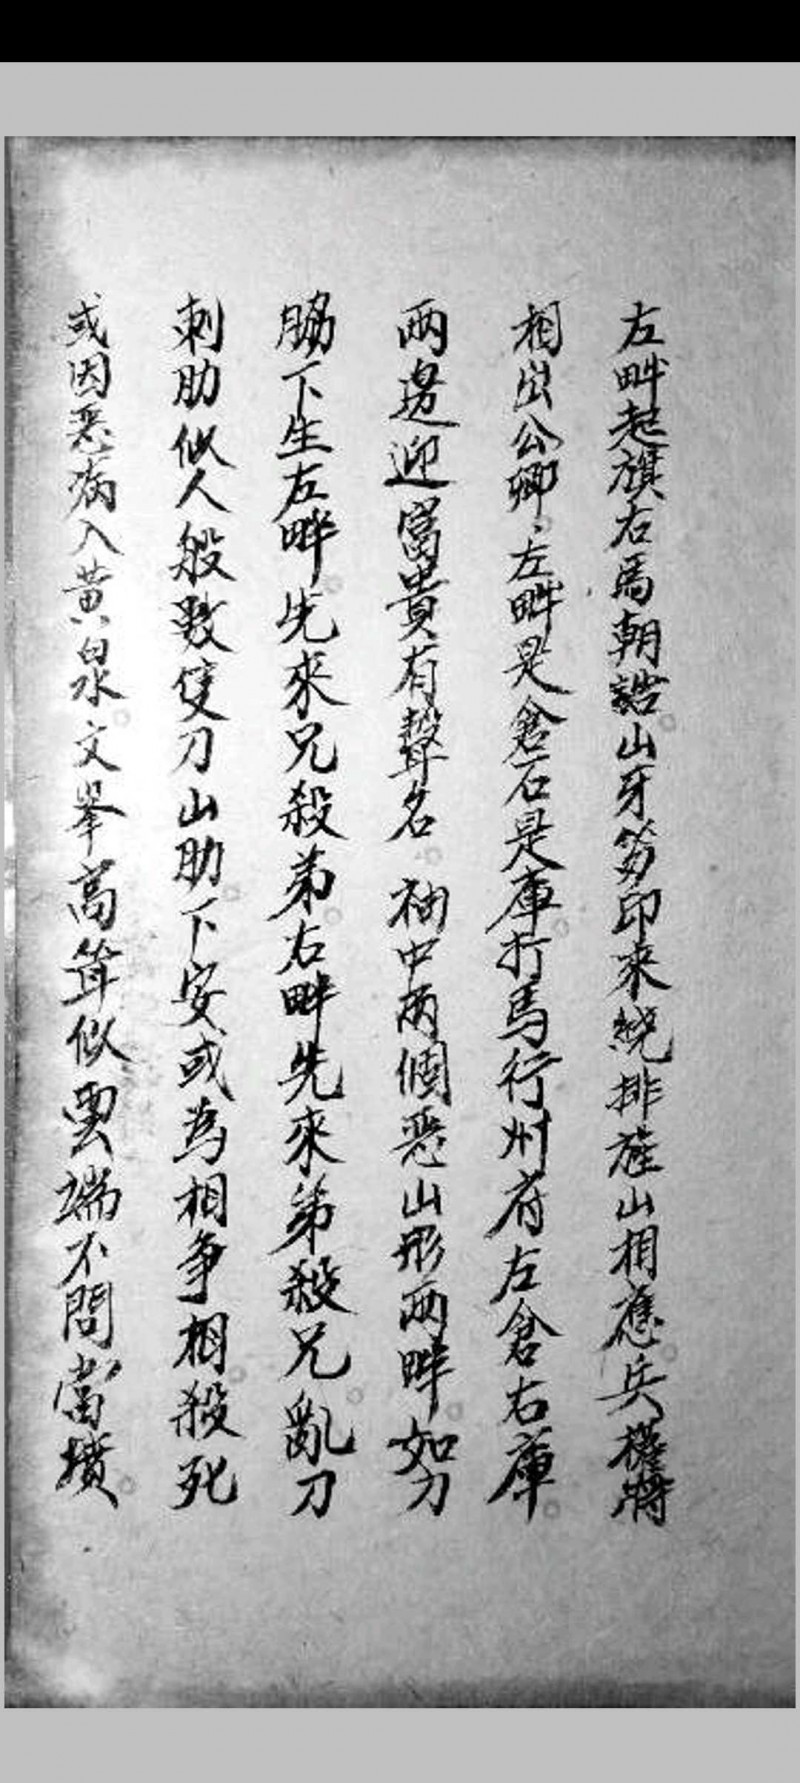 左畔起旗右馬朝誥山牙笏印來繞排旌山相應兵權將
相出公卿左畔是倉右是庫打馬行州府左倉右庫
兩邊迎富貴有聲名 袖中兩個惡山形兩畔如刀
脇下生左畔先來兄殺弟右畔先來弟殺兄亂刀
刺肋似人般數隻刀山肋下安或為相爭相殺死
或因惡病入黃泉文峯高聳似雲端不問當墳